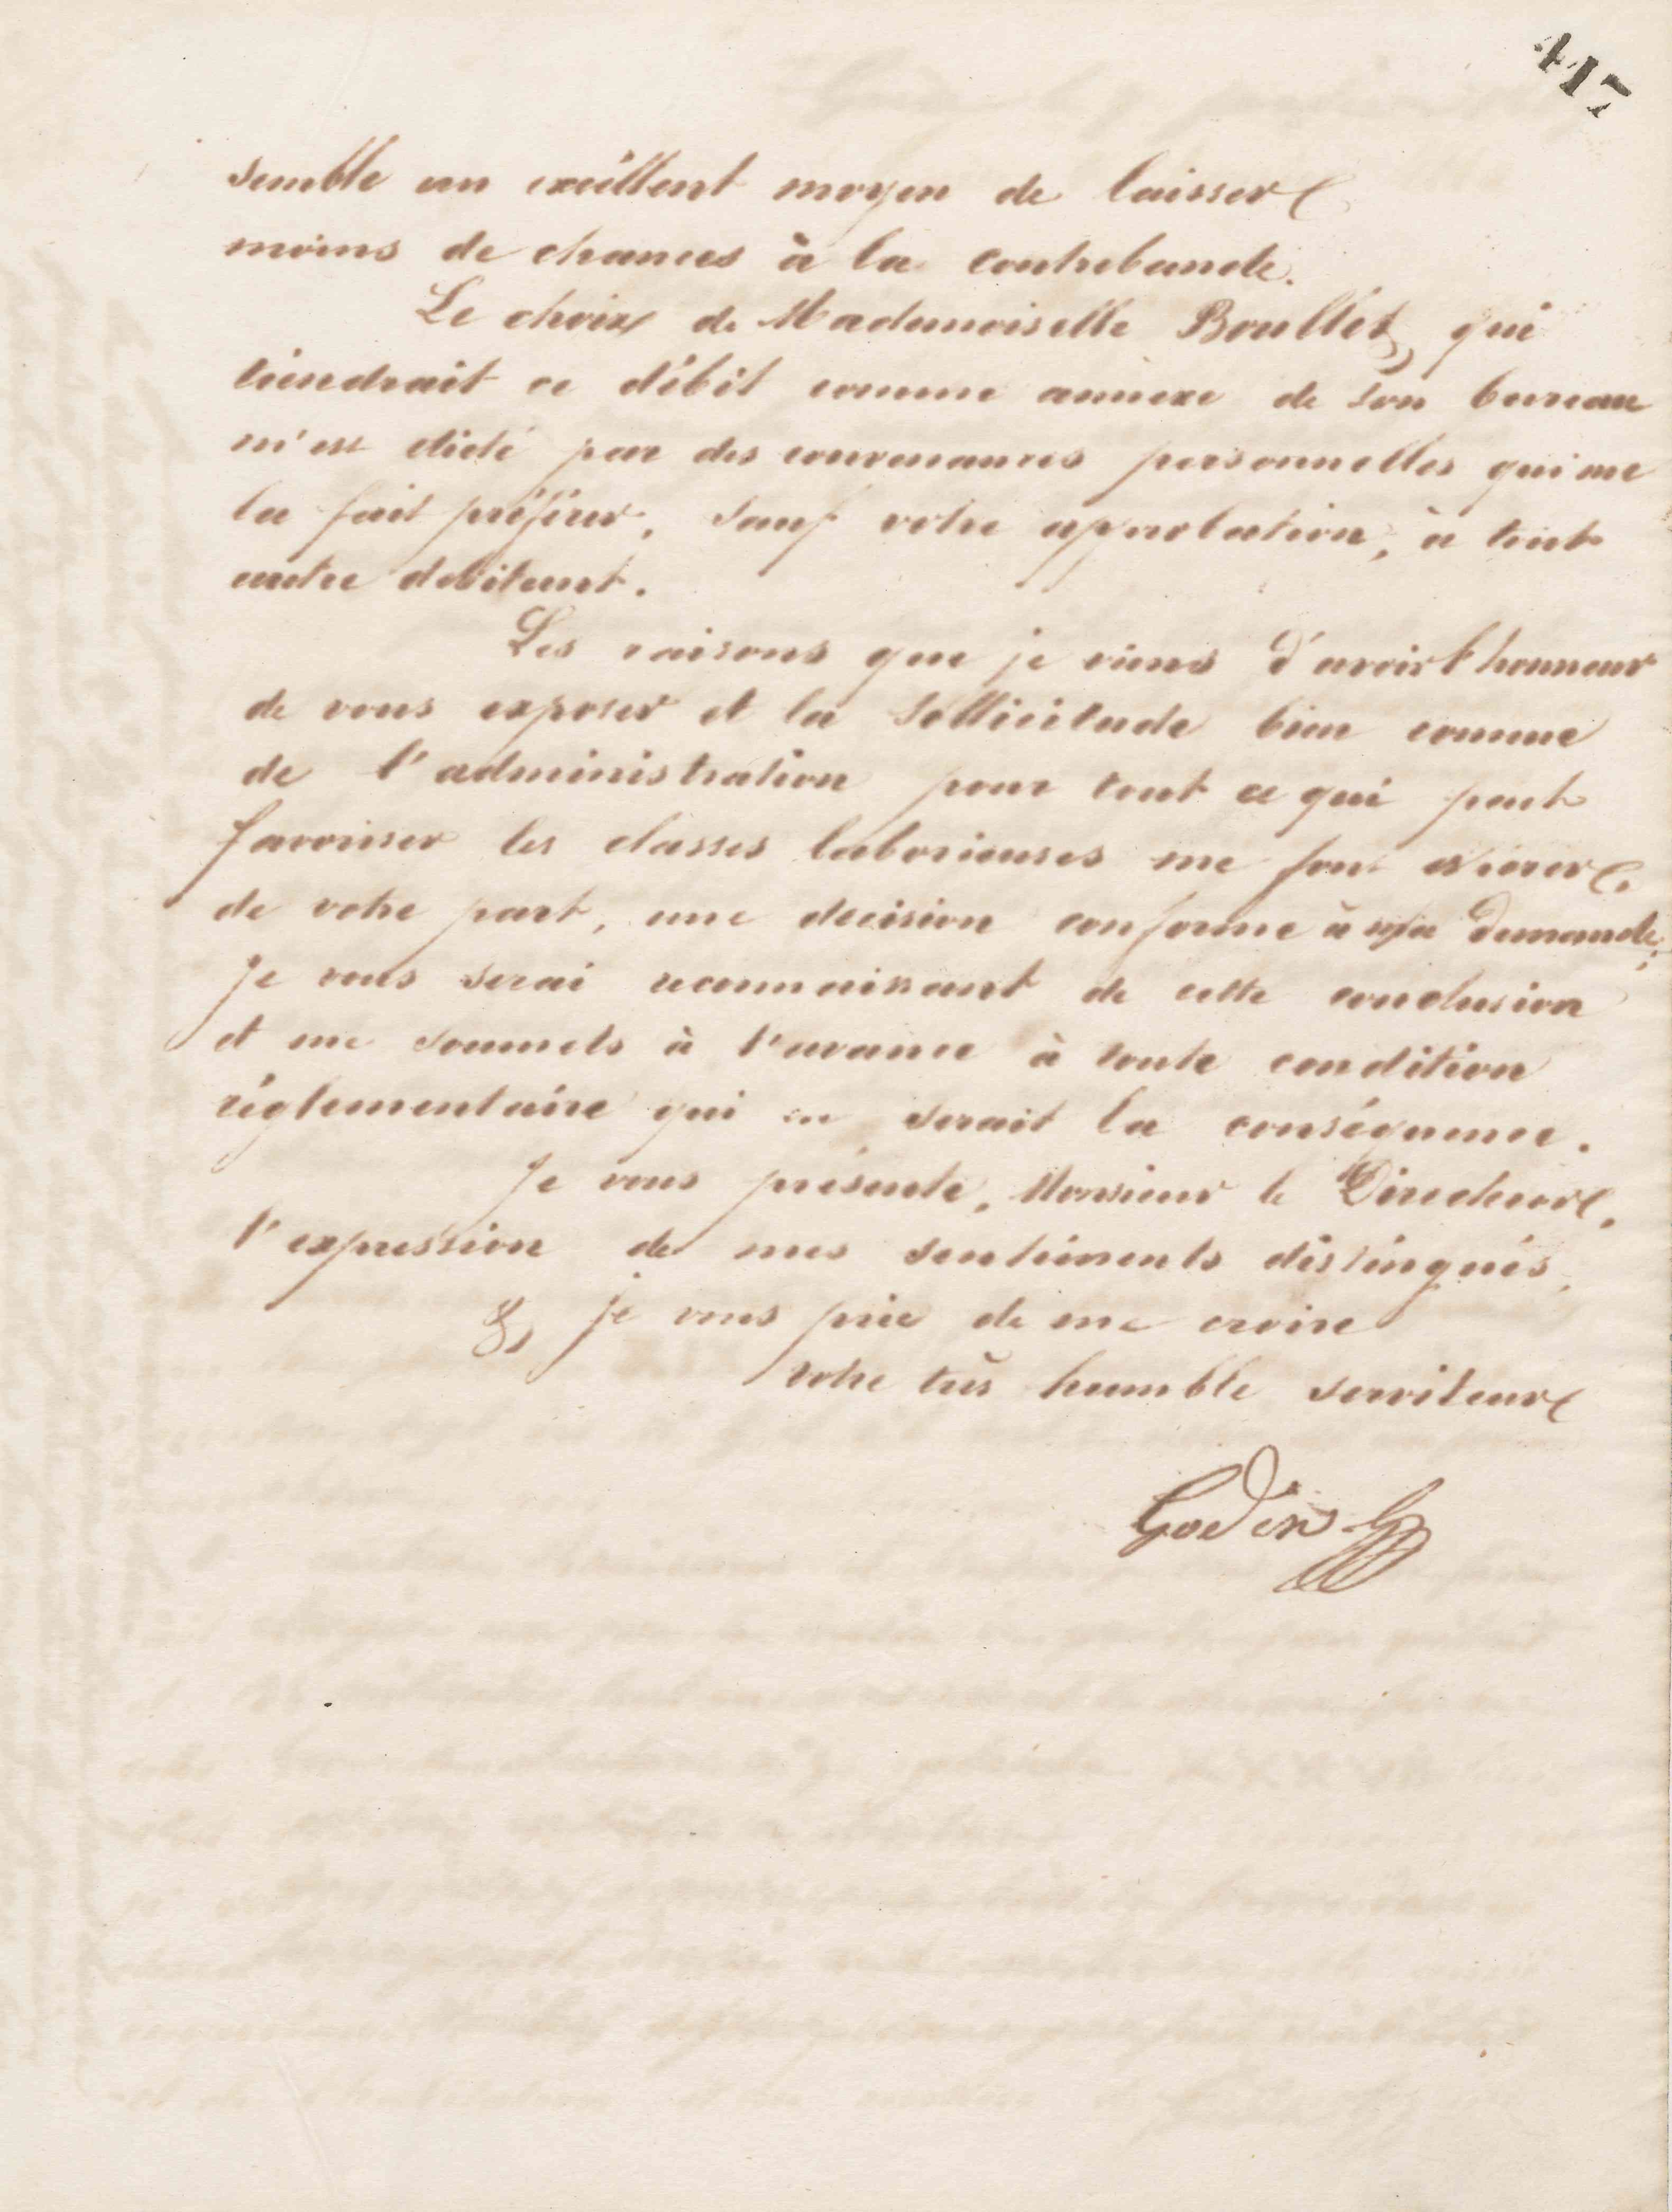 417
semble un excéllent moyen de laisser
moins de chances à la contrebande.
Le choix de Mademoiselle Boullet, qui
tiendrait ce débit comme annexe de son bureau
m'est dicté par des convenances personnelles qui me
la fait préférer, sauf votre approbation, à tout
autre debitant.
Les raisons que je viens d'avoir l'honneur
de vous exposer et la sollicitude bien connue
de l'administration pour tout ce qui peut
favoriser les classes laborieuses me font espérer,
de votre part, une decision conforme à ma demande;
je vous serai reconnaissant de cette conclusion
et me soumets à l'avance à toute condition
réglementaire qui en serait la conséquence.
Je vous présente, Monsieur le Directeur,
l'expression de mes sentiments distingués,
& je vous prie de me croire
votre très humble serviteur
Godin